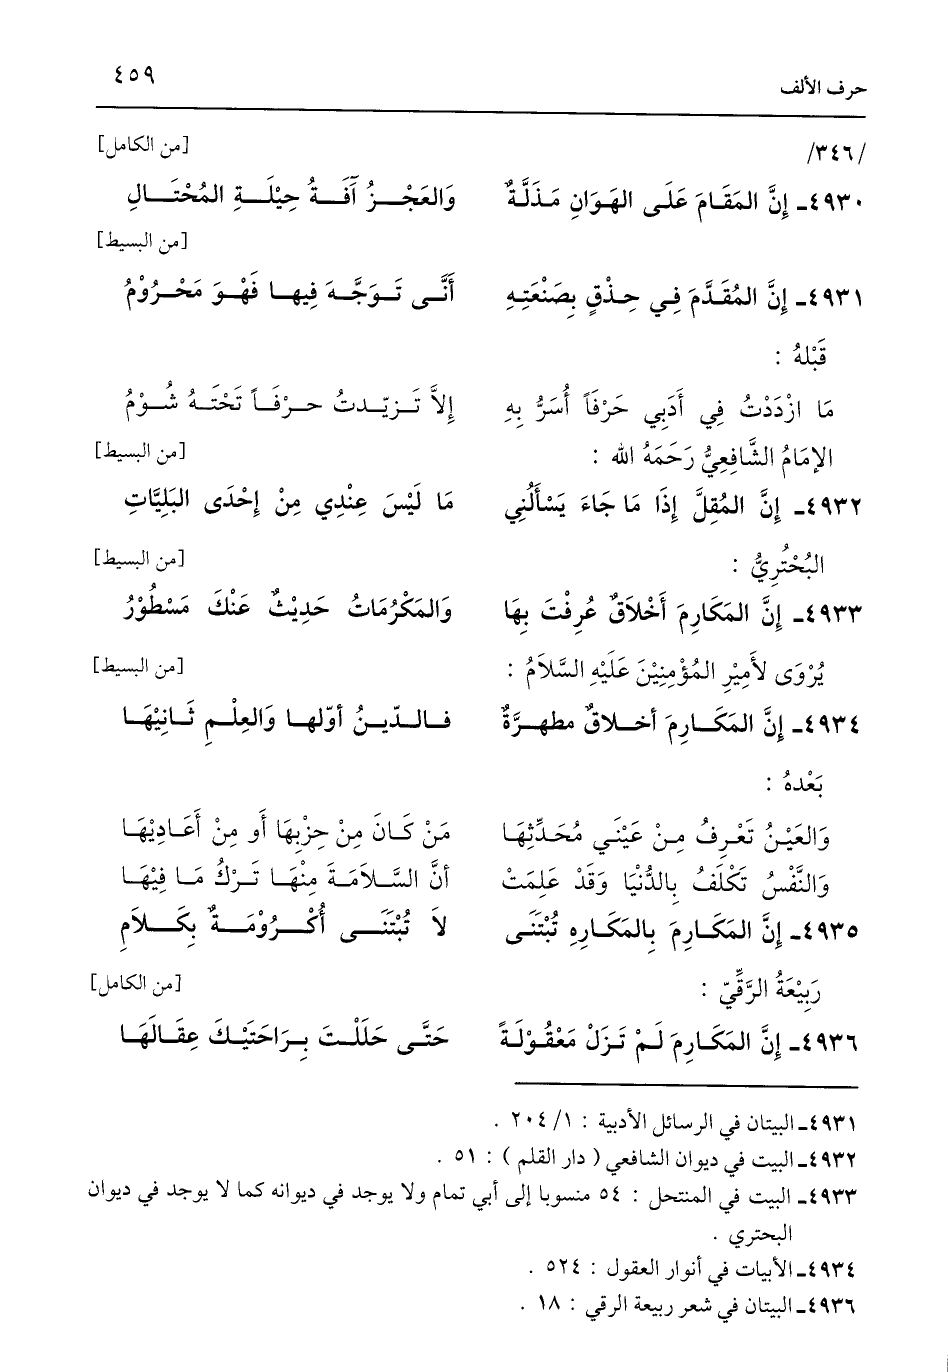 حرف الألف ٤٥٩
/٣٤٦/ [من الكامل]
٤٩٣٠ـ إِنَّ المَقَامَ عَلَى الهَوَانِ مَذَلَّةٌ وَالعَجْزُ آفَةُ حِيْلَةِ المُحْتَالِ
[من البسيط]
٤٩٣١ـ إِنَّ المُقَدَّمَ فِي حِذْقٍ بِصَنْعَتِهِ أَنَّى تَوَجَّهَ فِيها فَهْوَ مَحْرُوْمُ
قَبْلهُ :
مَا ازْدَدْتُ فِي أَدَبِي حَرْفَاً أُسَرُّ بِهِ إِلاَّ تَزيّدتُ حرْفَاً تَحْتَهُ شُوْمُ
الإمَامُ الشَّافِعِيُّ رَحَمَهُ الله : [من البسيط]
٤٩٣٢ـ إِنَّ المُقِلَّ إِذَا مَا جَاءَ يَسْأَلُنِي مَا لَيْسَ عِنْدِي مِنْ إِحْدَى البَلِيَّاتِ
البُحْتُرِيُّ : [من البسيط]
٤٩٣٣ـ إِنَّ المَكَارِمَ أَخْلَاقٌ عُرِفْتَ بِهَا وَالمَكْرُمَاتُ حَدِيْثٌ عَنْكَ مَسْطُوْرُ
يُرْوَى لأَمِيْرِ المُؤْمِنِيْنَ عَلَيْهِ السَّلاَمُ : [من البسيط]
٤٩٣٤ـ إِنَّ المَكَارِمَ أخلاقٌ مطهرَّةٌ فالدّينُ أوّلها وَالعِلْمِ ثَانِيْهَا
بَعْدهُ :
وَالعَيْنُ تَعْرِفُ مِنْ عَيْنَي مُحَدِّثِهَا مَنْ كَانَ مِنْ حِزْبِهَا أَو مِنْ أَعَادِيْهَا
وَالنَّفْسُ تَكْلَفُ بِالدُّنْيَا وَقَدْ عَلِمَتْ أنَّ السَّلاَمَةَ مِنْهَا تَرْكُ مَا فِيْهَا
٤٩٣٥ـ إِنَّ المَكَارِمَ بِالمَكَارِهِ تُبْتَنَى لاَ تُبْتَنَى أُكْرُوْمَةٌ بِكَلاَمِ
رَبِيْعَةُ الرَّقِّيّ : [من الكامل]
٤٩٣٦ـ إِنَّ المَكَارِمَ لَمْ تَزَلْ مَعْقُوْلَةً حَتَّى حَلَلْتَ بِرَاحَتِيْكَ عِقَالَهَا
٤٩٣١ـ البيتان في الرسائل الأدبية : ١/ ٢٠٤ .
٤٩٣٢ـ البيت في ديوان الشافعي ( دار القلم ) : ٥١ .
٤٩٣٣ـ البيت في المنتحل : ٥٤ منسوبا إلى أبي تمام ولا يوجد في ديوانه كما لا يوجد في ديوان
البحتري .
٤٩٣٤ـ الأبيات في أنوار العقول : ٥٢٤ .
٤٩٣٦ـ البيتان في شعر ربيعة الرقي : ١٨ .